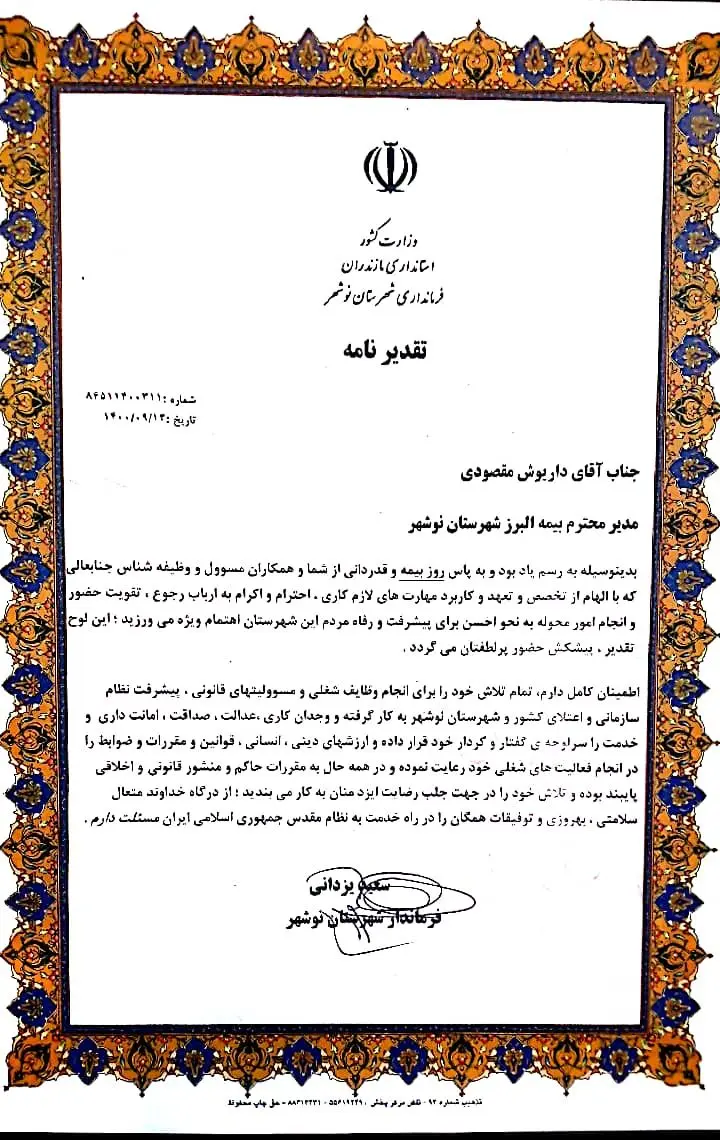 وزارت کشور
استانداری مازندران
فرمانداری شهرستان نوشهر
تقدیر نامه
شماره :۸۶۵۱۱۴۰۰۳۱۱
تاریخ :۱۴۰۰/۰۹/۱۳
جناب آقای داریوش مقصودی
مدیر محترم بیمه البرز شهرستان نوشهر
بدینوسیله به رسم یاد بود و به پاس روز بیمه و قدردانی از شما و همکاران مسوول و وظیفه شناس جنابعالی
که با الهام از تخصص و تعهد و کاربرد مهارت های لازم کاری ، احترام و اکرام به ارباب رجوع ، تقویت حضور
و انجام امور محوله به نحو احسن برای پیشرفت و رفاه مردم این شهرستان اهتمام ویژه می ورزید ؛ این لوح
تقدیر ، پیشکش حضور پرلطفتان می گردد .
اطمینان کامل دارم، تمام تلاش خود را برای انجام وظایف شغلی و مسوولیتهای قانونی ، پیشرفت نظام
سازمانی و اعتلای کشور و شهرستان نوشهر به کار گرفته و وجدان کاری ،عدالت ، صداقت ، امانت داری و
خدمت را سرلوحه ی گفتار و کردار خود قرار داده و ارزشهای دینی ، انسانی ، قوانین و مقررات و ضوابط را
در انجام فعالیت های شغلی خود رعایت نموده و در همه حال به مقررات حاکم و منشور قانونی و اخلاقی
پایبند بوده و تلاش خود را در جهت جلب رضایت ایزد منان به کار می بندید ؛ از درگاه خداوند متعال
سلامتی ، بهروزی و توفیقات همگان را در راه خدمت به نظام مقدس جمهوری اسلامی ایران مسئلت دارم .
سعید یزدانی
فرماندار شهرستان نوشهر
تذهیب شماره ۹۲ - تلفن مرکز پخش : ۵۵۶۱۹۲۲۹ - ۸۸۳۱۴۲۳۱ - حق چاپ محفوظ